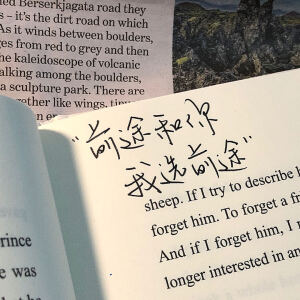 ned Berserkjagata road they
s – it's the dirt road on which
As it winds between boulders,
ges from red to grey and then
he kaleidoscope of volcanic
alking among the boulders,
a sculpture park. There are
gether like wings, tiny
"前途和你
我选前途"
sheep. If I try to describe h
forget him. To forget a fr
And if I forget him, I m
longer interested in an
rince
e was
but he